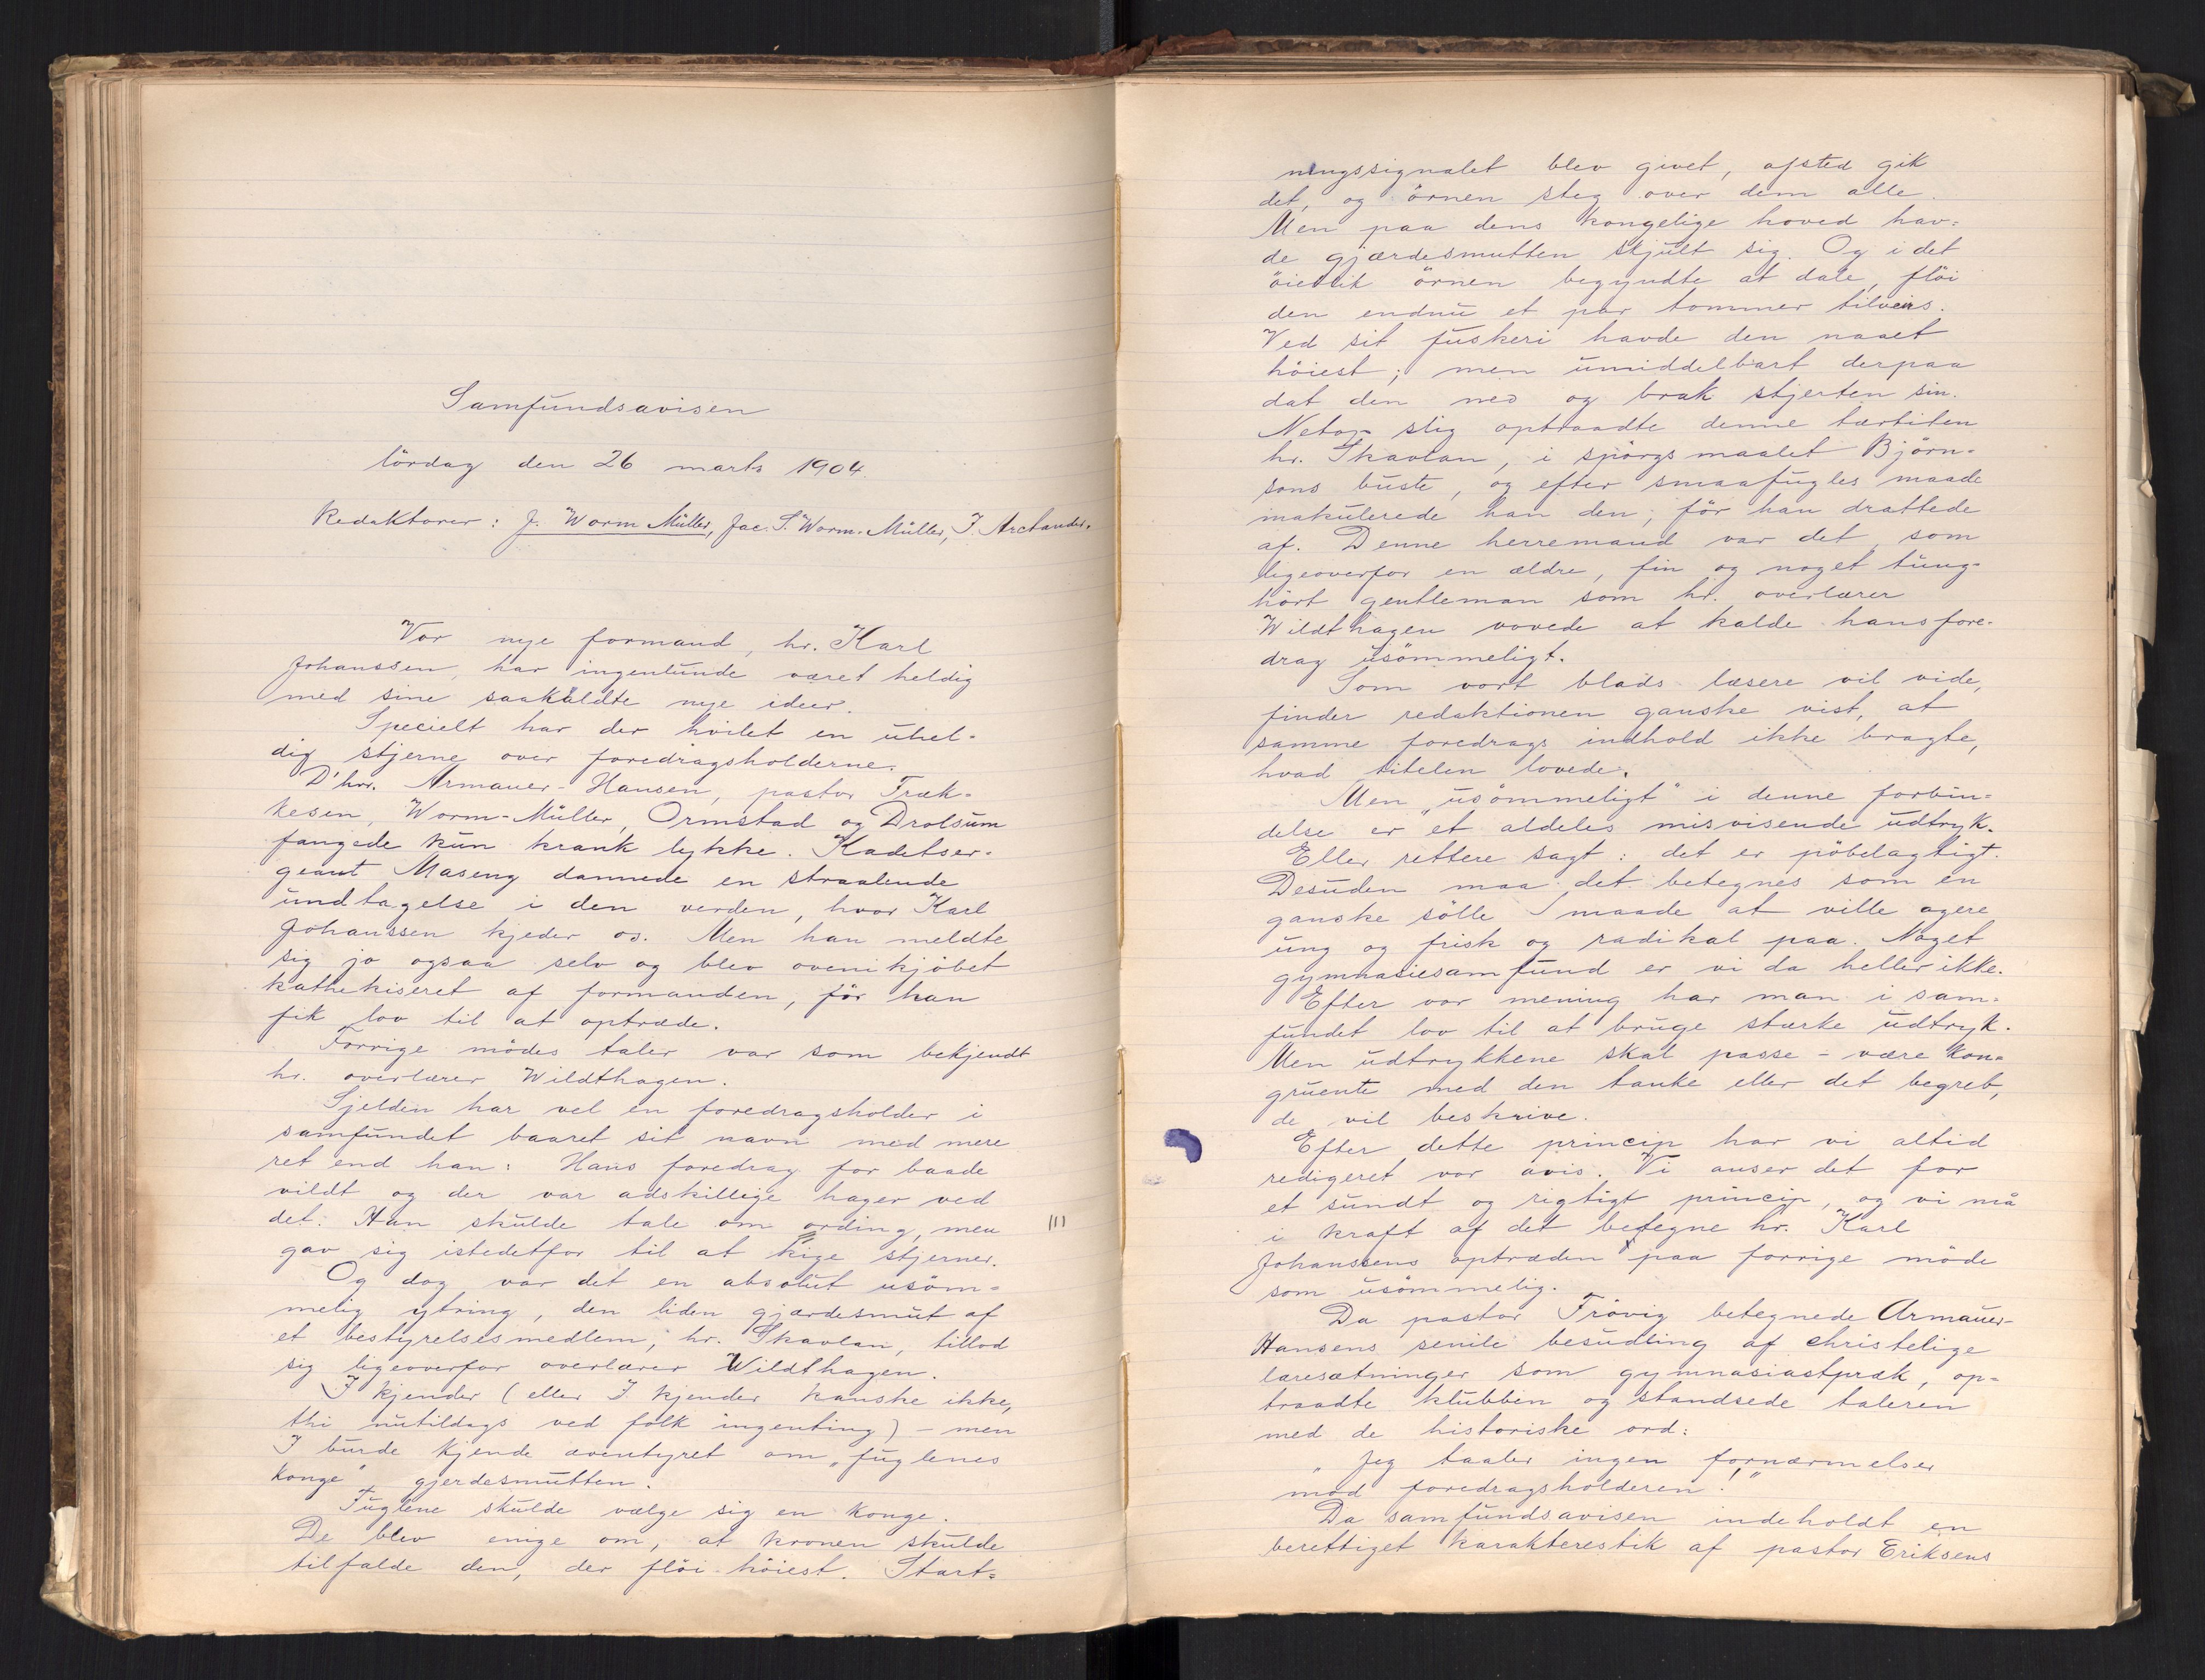 Samfundsavisen
lördag den 26 marts 1904.
Redaktører: J. Worm Müller, Jac. S. Worm-Müller, J. Arctander.
Vor nye formand, hr. Karl
Johanssen, har ingenlunde været heldig
med sine saakaldte nye ideer.
Specielt har der hvilet en uhel-
dig stjerne over foredragsholderne.
D'hrr. Armauer-Hansen, pastor
kesen, Worm-Müller, Ormstad og Drolsum
fangede kun krank lykke. Kadetser-
geant Maseng dannede en straalende
undtagelse i den verden, hvor Karl
Johanssen kjeder os. Men han meldte
sig jo ogsaa selv og blev ovenikjöbet
kathekiseret af formanden, för han
fik lov til at optræde.
Forrige mödes taler var som bekjendt
hr. overlærer Wildthagen.
Sjelden har vel en foredragsholder i
samfundet baaret sit navn med mere
ret end han: Hans foredrag for baade
vildt og der var adskillige hager ved
det. Han skulde tale om ording, men
gav sig istedetfor til at kige stjerner.
Og dog var det en absolut usöm-
melig ytring, den liden gjærdesmut af
et bestyrelsesmedlem, hr. Skavlan, tillod
sig ligeoverfor overlærer Wildthagen.
I kjender (eller I kjender kanske ikke,
thi nutildags ved folk ingenting) - men
I burde kjende æventyret om "fuglenes
konge" gjerdesmutten.
Fuglene skulde vælge sig en konge.
De blev enige om, at kronen skulde
tilfalde den, der flöi höiest. Start-
ningssignalet blev givet, afsted gik
det, og örnen steg over dem alle.
Men paa dens kongelige hoved hav-
de gjærdesmutten skjult sig. Og i det
öieblik örnen begyndte at dale, flöi
den endnu et par tommer tilveirs.
Ved sit fuskeri havde den naaet
höiest; men umiddelbart derpaa
dat den ned og brak stjerten sin.
Netop slig optraadte denne tærtiten
hr. Skavlan, i spörgsmaalet Björn-
sons buste, og efter smaafugles maade
makulerede han den, för han drattede
af. Denne herremand var det, som
ligeoverfor en ældre, fin og noget tung-
hört gentleman som hr. overlærer
Wildthagen vovede at kalde hans fore-
drag usömmeligt.
Som vort blads læsere vil vide,
finder redaktionen ganske vist, at
samme foredrags indhold ikke bragte,
hvad titelen lovede.
Men "usömmeligt" i denne forbin-
delse er et aldeles misvisende udtryk.
Eller rettere sagt: det er pöbelagtigt.
Desuden maa det betegnes som en
ganske sölle maade at ville agere
ung og frisk og radikal paa. Noget
gymnasiesamfund er vi da heller ikke.
Efter vor mening har man i sam-
fundet lov til at bruge stærke udtryk.
Men udtrykkene skal passe - være kon-
gruente med den tanke eller det begreb,
de vil beskrive.
Efter dette princip har vi altid
redigeret vor avis. Vi anser det for
et sundt og rigtigt princip, og vi må
i kraft af det betegne hr. Karl
Johanssens optræden paa forrige möde
som usömmelig.
Da pastor Frövig betegnede Armauer-
Hansens senile besudling af christelige
læresætninger som gymnasiastpræk, op-
traadte klubben og standsede taleren
med de historiske ord:
"Jeg taaler ingen fornærmelser
mod foredragsholderen!"
Da samfundsavisen indeholdt en
berettiget karakterestik af pastor Eriksens